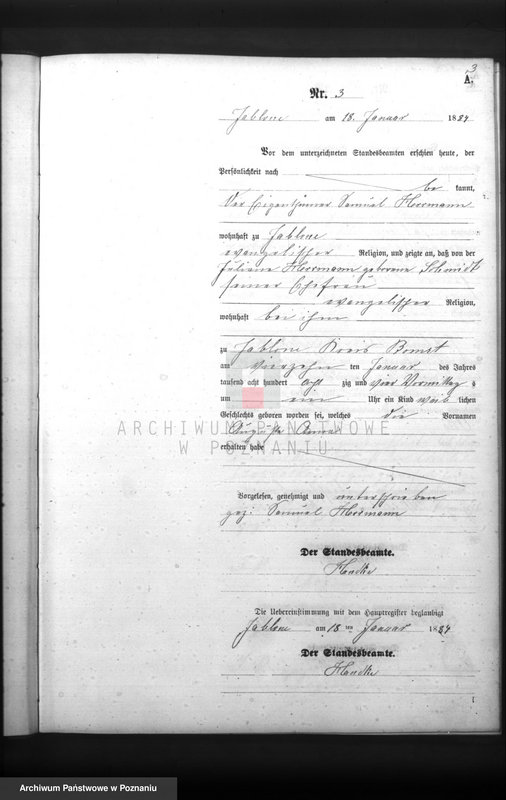 3
A.
Nr. 3
Jablone am 18. Januar 1884
Vor dem unterzeichneten Standesbeamten erschien heute, der
Persönlichkeit nach
be kannt,
Der Eigenthümer Samuel Herrmann
wohnhaft zu Jablone
evangelischer Religion, und zeigte an, daß von der
Juliane Herrmann geborene Schmidt
seiner Ehefrau
evangelischer Religion,
wohnhaft bei ihm
zu Jablone Kreis Bomst
am vierzehn ten Januar des Jahres
tausend acht hundert acht zig und vier Vormittag s
um ein Uhr ein Kind weib lichen
Geschlechts geboren worden sei, welches die Vornamen
Auguste Anna
erhalten habe
Vorgelesen, genehmigt und unterschrieben
gez: Samuel Herrmann
Der Standesbeamte.
Die Uebereinstimmung mit dem Hauptregister beglaubigt
Jablone am 18 ten Januar 1884
Der Standesbeamte.
ARCHIWUM PAŃSTWOWE
W POZNANIU
Archiwum Państwowe w Poznaniu